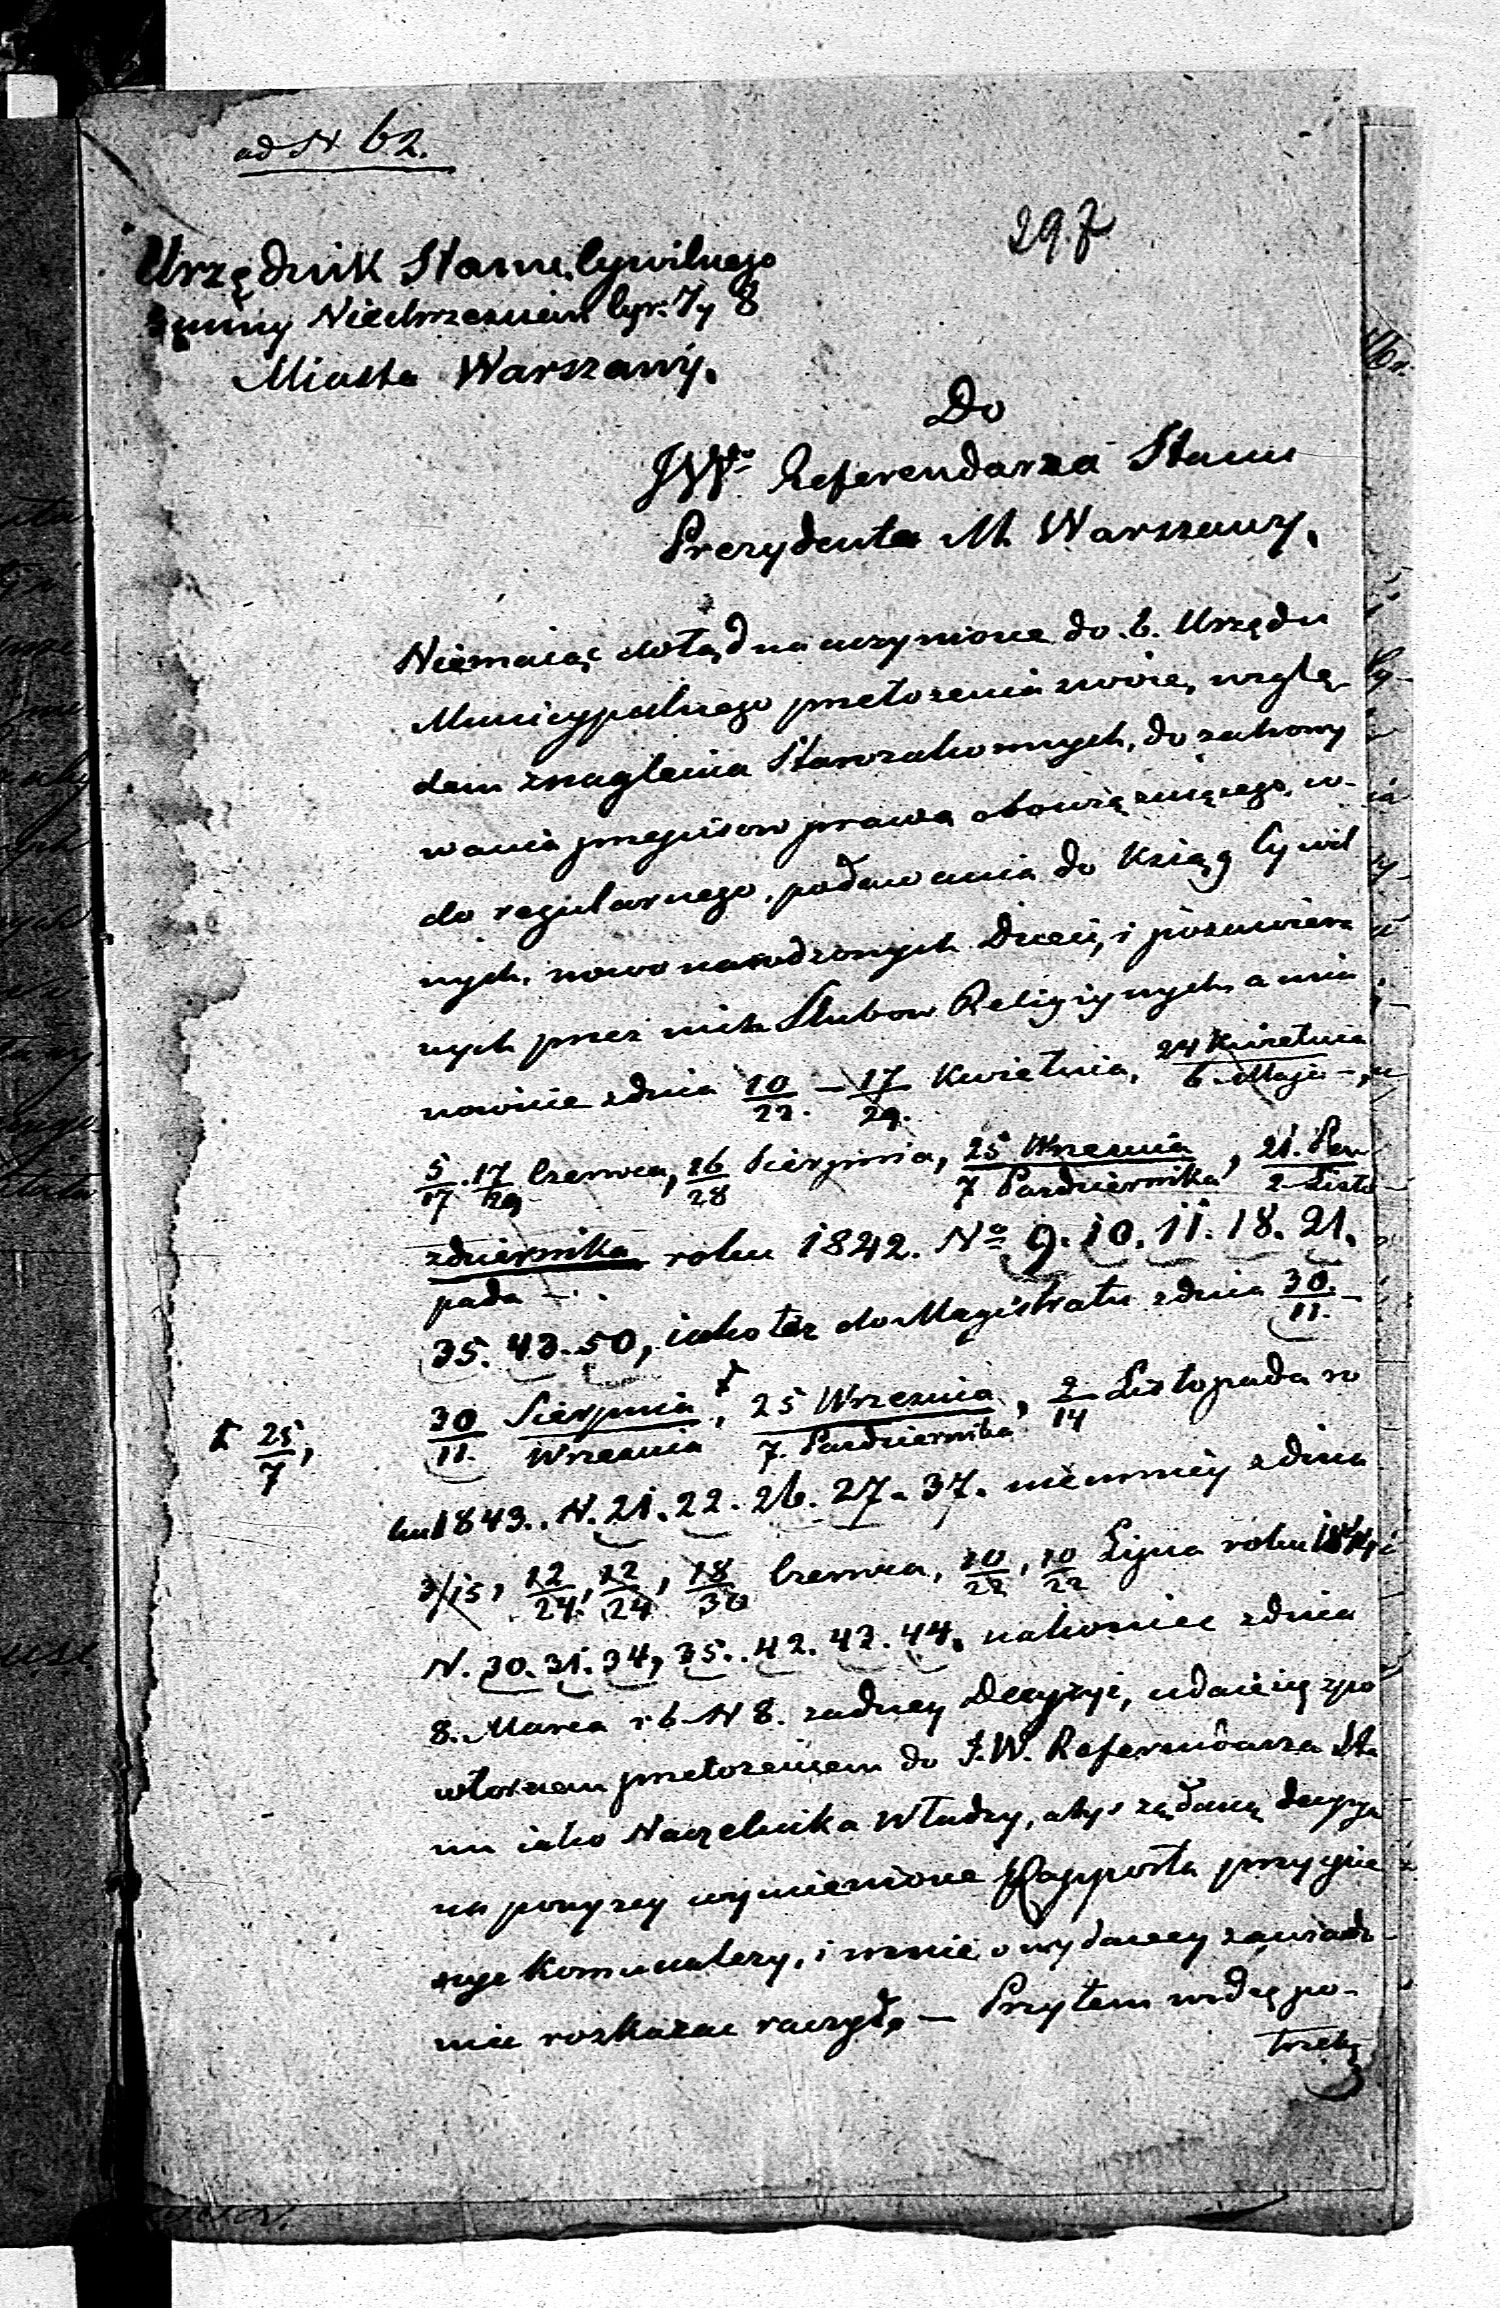 ad N 62.
297
Urzędnik Stanu Cywilnego
Gminy Niechrzescian Cyr. 7 y 8
Miasta Warszawy.
Do
JWo Referendarza Stanu
Prezydenta M. Warszawy.
Niemaiąc dotąd na uczynione do b. Urzędu
Municypalnego przełożenia swoie, wzglę-
dem znaglenia Starozakonnych, do zachowy
wania przepisow prawa obowiązuiącego, co-
do regularnego podawania do Ksiąg Cywil
nych, nowonarodzonych Dzieci, i pozawiera
nych przez nich Slubow Religiynych, a mia
nowicie z dnia 10/22. – 17/29. Kwietnia, 24 Kwietnia/6 Maja –,
5/17. 17/29 Czerwca, 16/28 Sierpnia, 25 Września/7 Października, 21. Pa/2 Listo
zdziernika roku 1842. No 9. 10. 11. 18. 21.
pada –
35. 43. 50, iako tez do Magistratu z dnia 30./11. –
30/11. Sierpnia/Wrzesnia, 25 Wrzesnia/7. Pazdziernika, 2/14 Listopada ro
25/7,
ku 1843. N. 21. 22. 26. 27. 37. niemniey z dnia
3/15, 12/24, 12/24, 18/30 Czerwca, 10/22, 10/22 Lipca roku 1844 i
N. 30. 31. 34, 35. 42. 43. 44. nakoniec z dnia
8. Marca r b N 8. zadney Decyzyi, udaię się z po
wtornem przełozeniem do J.W. Referendarza Sta
nu iako Naczelnika Władzy, aby żądaną decyzyą
na powyzey wymienione Rapporta przyspie
szyc
i mnie o wydaney zawiado-
mic rozkazac raczył, – Przytem widzę po-
trzebę